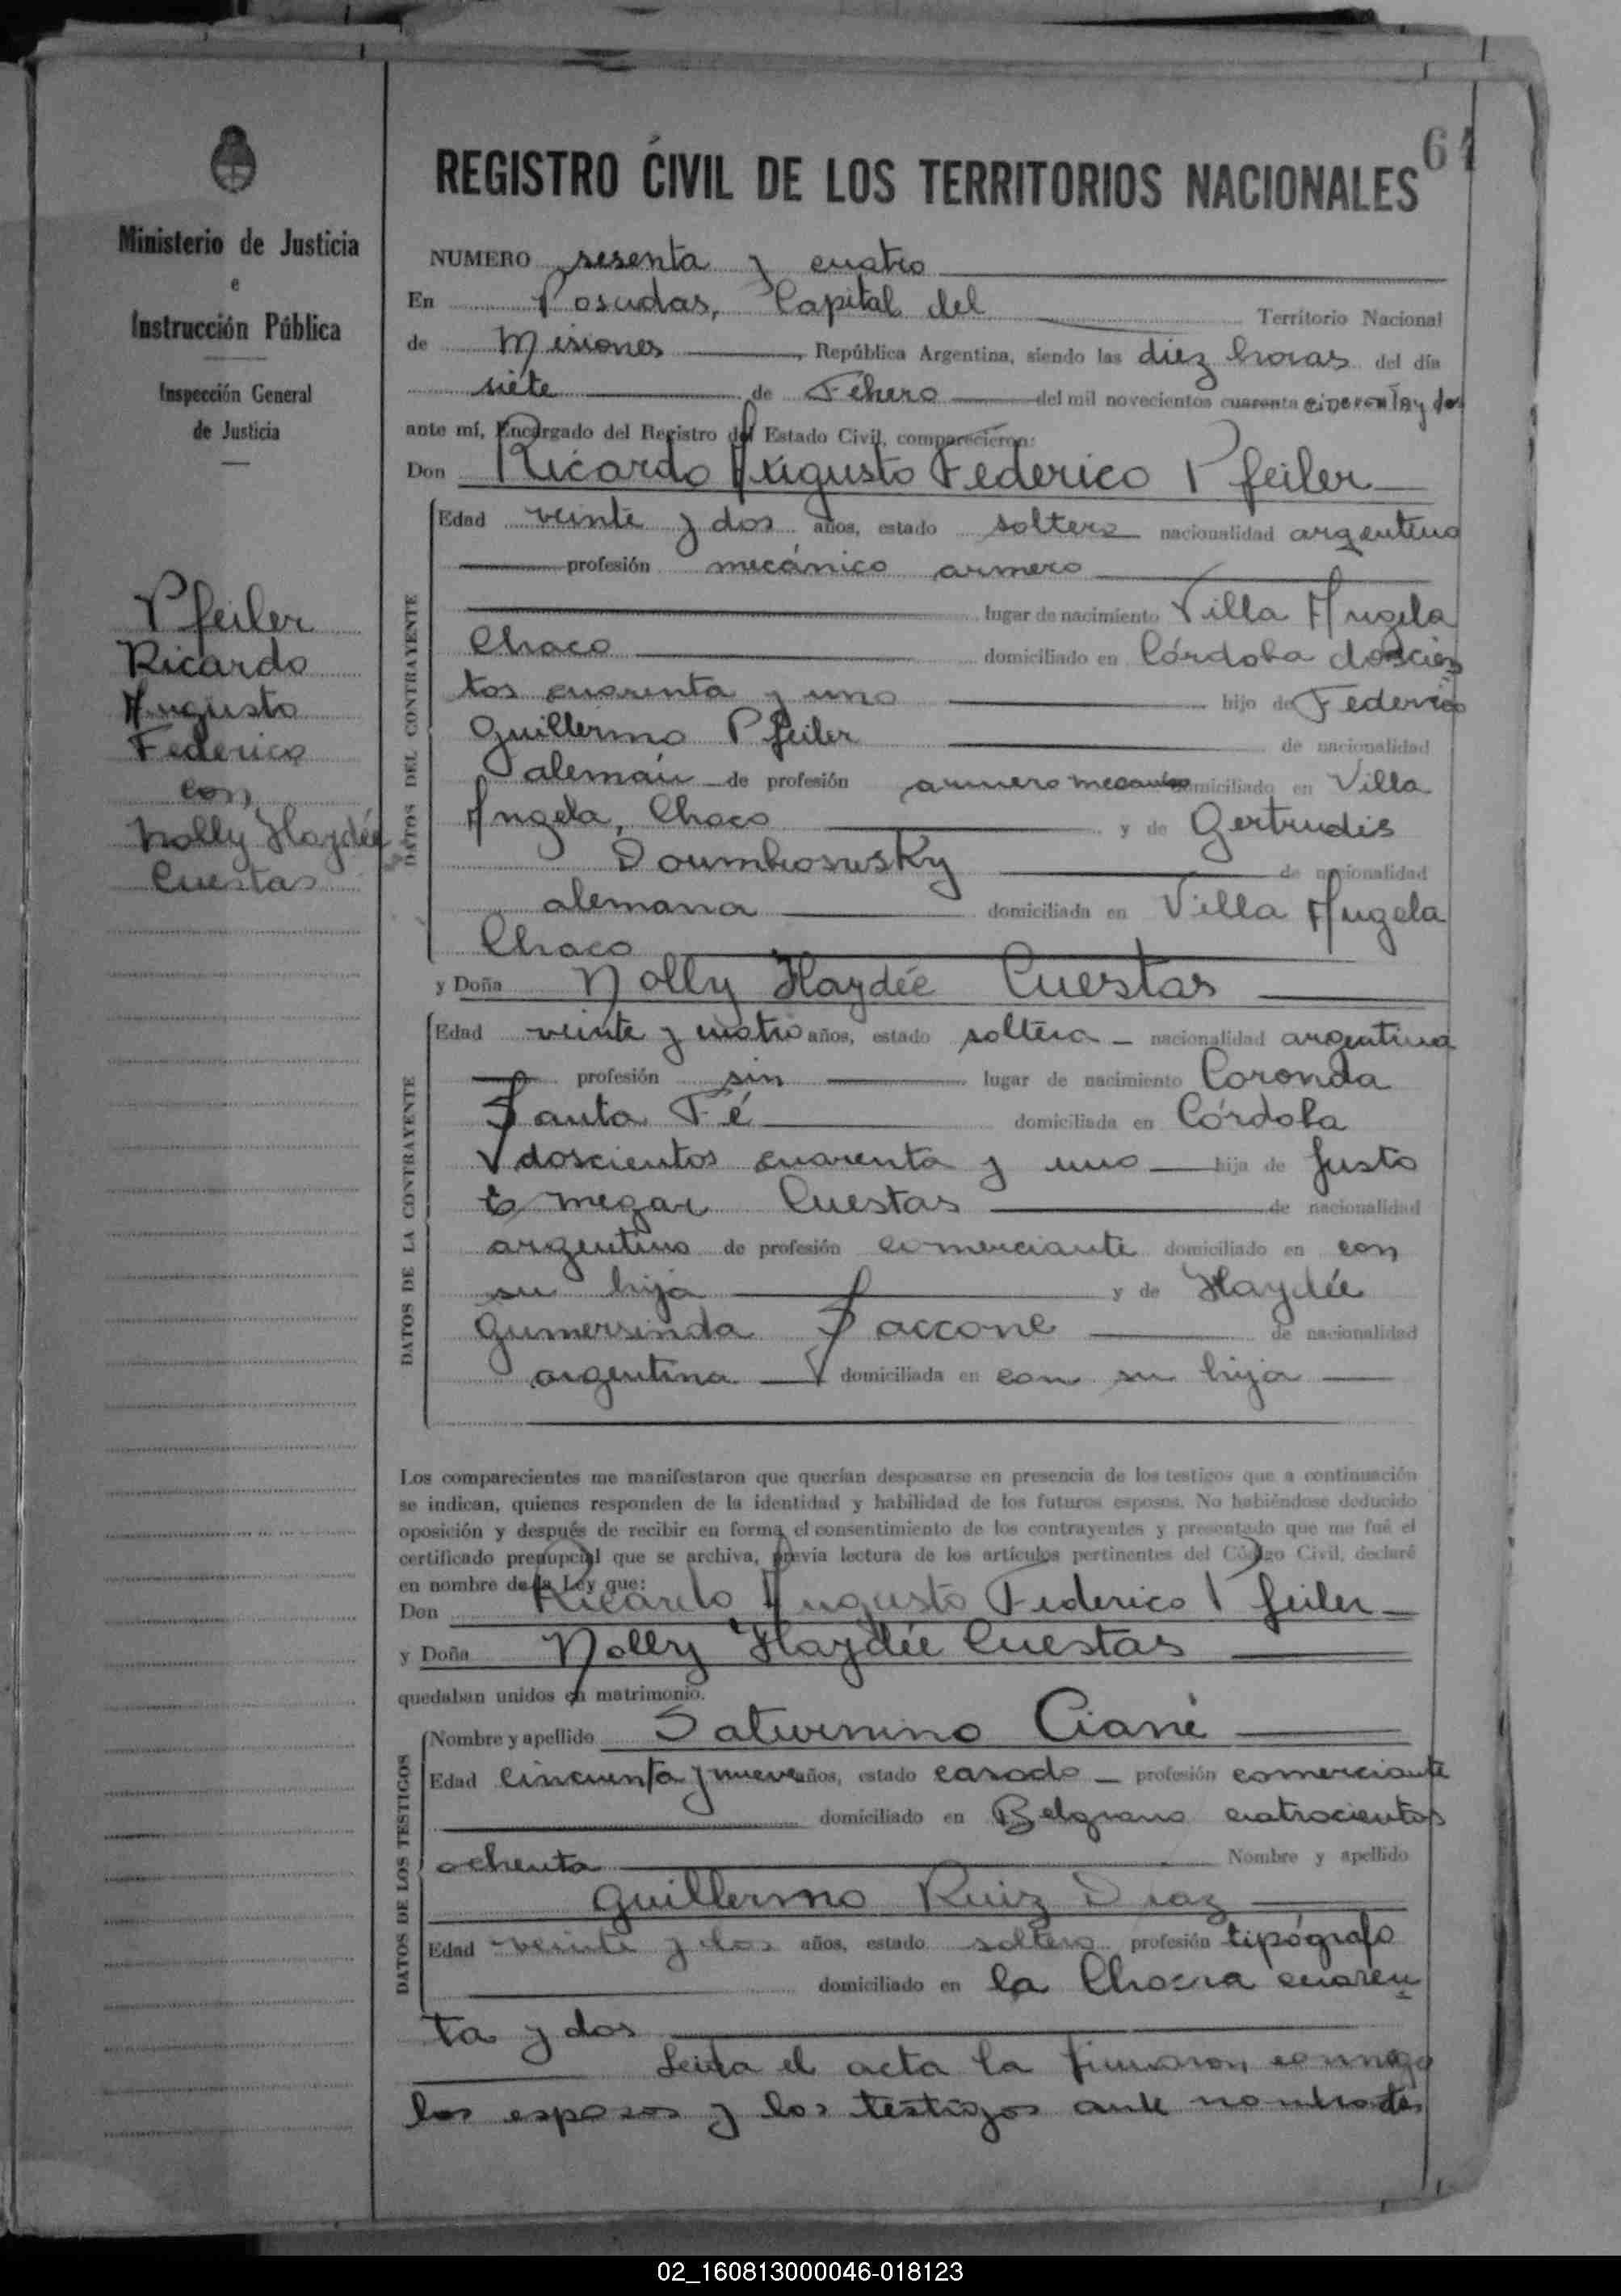 64
Ministerio de Justicia
e
Instrucción Pública
Inspección General
de Justicia
Pfeiler
Ricardo
Augusto
Federico
con
Nolly Haydée
Cuestas
REGISTRO CIVIL DE LOS TERRITORIOS NACIONALES
NUMERO sesenta y cuatro
En Posadas, Capital del Territorio Nacional
de Misiones, República Argentina, siendo las diez horas del día
siete de Febrero del mil novecientos cuarenta cincuenta y dos
ante mí, Encargado del Registro del Estado Civil, comparecieron:
Don Ricardo Augusto Federico Pfeiler
DATOS DEL CONTRAYENTE
Edad veinte y dos años, estado soltero nacionalidad argentino
profesión mecánico armero
lugar de nacimiento Villa Angela
Chaco domiciliado en Córdoba doscien
tos cuarenta y uno hijo de Federico
Guillermo Pfeiler de nacionalidad
alemán de profesión armero mecanico domiciliado en Villa
Angela, Chaco y de Gertrudis
de nacionalidad
alemana domiciliada en Villa Angela
Chaco
y Doña Nolly Haydée Cuestas
DATOS DE LA CONTRAYENTE
Edad veinte y cuatro años, estado soltera nacionalidad argentina
profesión sin lugar de nacimiento Coronda
Santa Fé domiciliada en Córdoba
doscientos cuarenta y uno hija de Justo
Cuestas de nacionalidad
argentino de profesión comerciante domiciliado en con
su hija y de Haydée
Gumersinda Saccone de nacionalidad
argentina domiciliada en con su hija
Los comparecientes me manifestaron que querían desposarse en presencia de los testigos que a continuación
se indican, quienes responden de la identidad y habilidad de los futuros esposos. No habiéndose deducido
oposición y después de recibir en forma el consentimiento de los contrayentes y presentado que me fué el
certificado prenupcial que se archiva, previa lectura de los artículos pertinentes del Código Civil, declaré
en nombre de la Ley que:
Don Ricardo Augusto Federico Pfeiler
y Doña Nolly Haydée Cuestas
quedaban unidos en matrimonio.
DATOS DE LOS TESTIGOS
Nombre y apellido Saturnino Ciané
Edad cincuenta y nueve años, estado casado profesión comerciante
domiciliado en Belgrano cuatrocientos
ochenta Nombre y apellido
Guillermo Ruiz Diaz
Edad veinte y dos años, estado soltero profesión tipógrafo
domiciliado en la Chacra cuaren
ta y dos
Leida el acta la firmaron conmigo
los esposos y los testigos ante nombrados
02_160813000046-018123